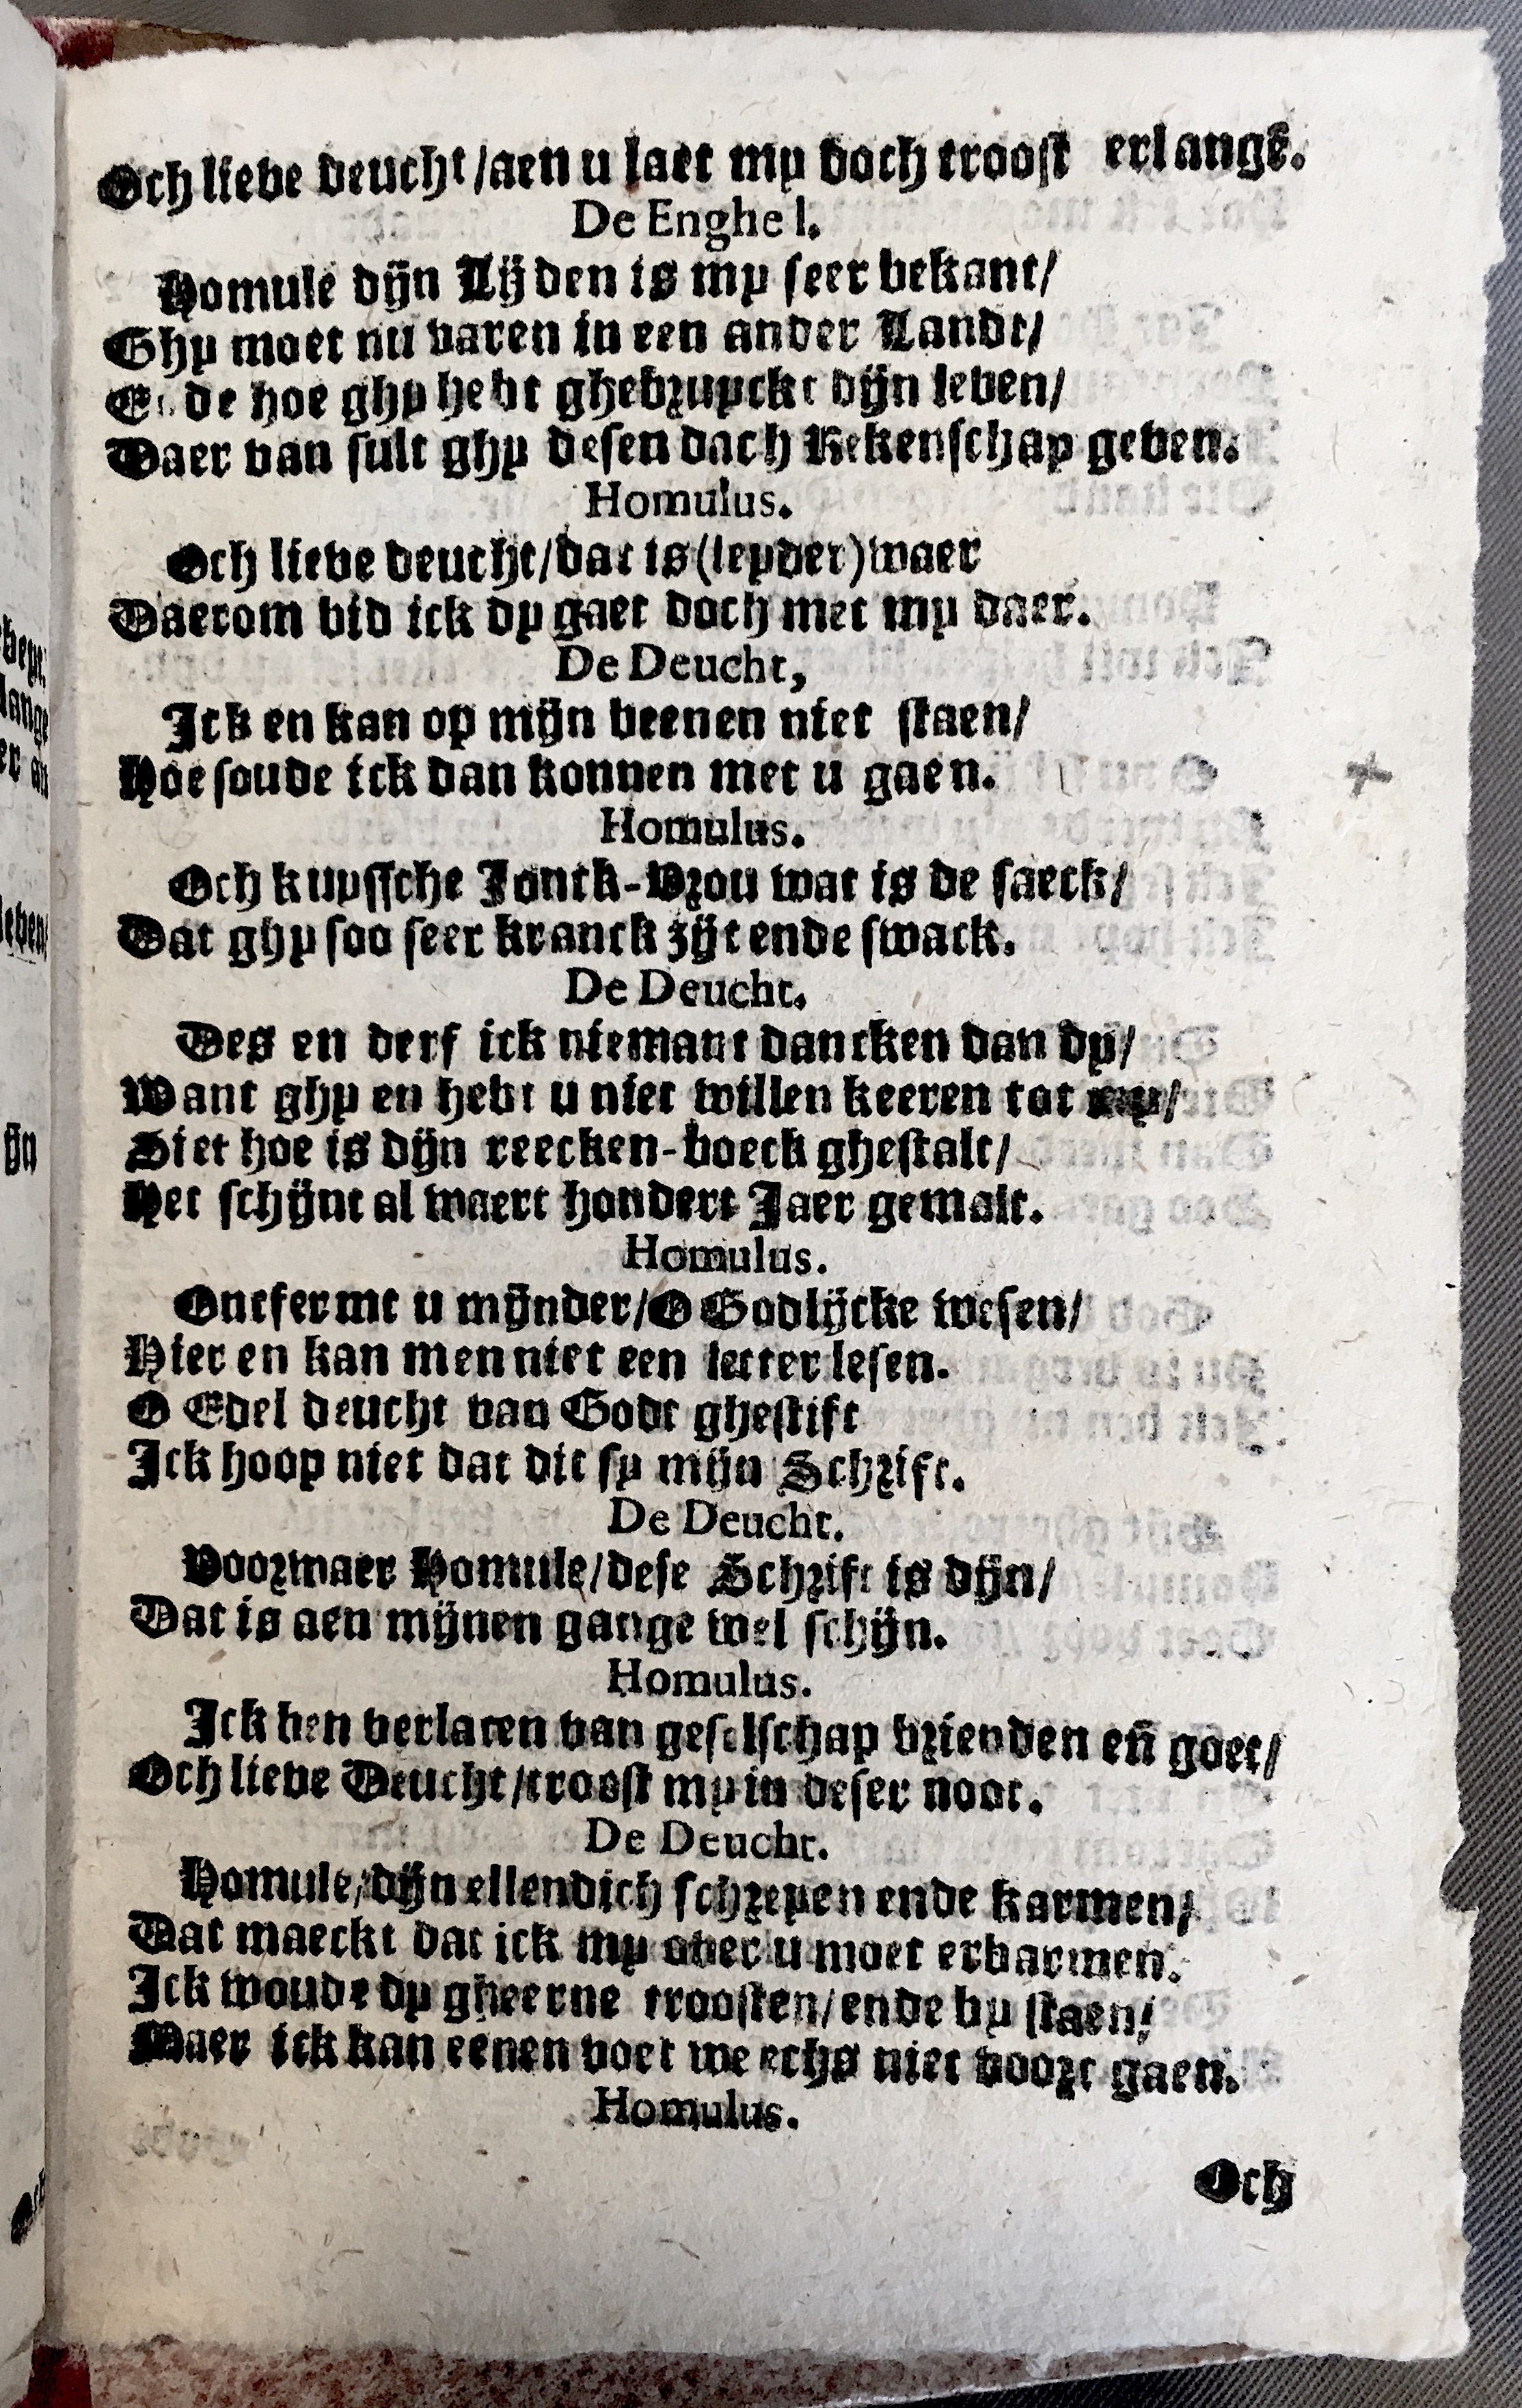 Och lieve deucht/aen u laet my doch troost erlangē.
De Enghel.
Homule dijn Lijden is my seer bekant/
Ghy moet nu varen in een ander Landt/
Ende hoe ghy hebt ghebruyckt dijn leven/
Daer van sult ghy desen dach Rekenschap geven.
Homulus.
Och lieve deucht/dat is (leyder) waer
Daerom bid ick dy gaet doch met my daer.
De Deucht,
Ick en kan op mijn beenen niet staen/
Hoe soude ick dan konnen met u gaen.
Homulus.
Och kuyssche Jonck-Vrou wat is de saeck/
Dat ghy soo seer kranck zijt ende swack.
De Deucht.
Des en derf ick niemant dancken dan dy/
Want ghy en hebt u niet willen keeren tot my/
Siet hoe is dijn reecken-boeck ghestalt/
Het schijnt al waert hondert Jaer gemalt.
Homulus.
Ontfermt u mijnder/O Godlijcke wesen/
Hier en kan men niet een letter lesen.
O Edel deucht van Godt ghestift
Ick hoop niet dat dit sy mijn Schrift.
De Deucht.
Voorwaer Homule/dese Schrift is dijn/
Dat is aen mijnen gange wel schijn.
Homulus.
Ick ben verlaten van geselschap vrienden eñ goet/
Och lieve Deucht/troost my in deser noot.
De Deucht.
Homule/dijn ellendich schreyen ende karmen/
Dat maeckt dat ick my over u moet erbarmen.
Ick woude dy gheerne troosten/ende by staen/
Maer ick kan eenen voet weechs niet voort gaen.
Homulus.
Och